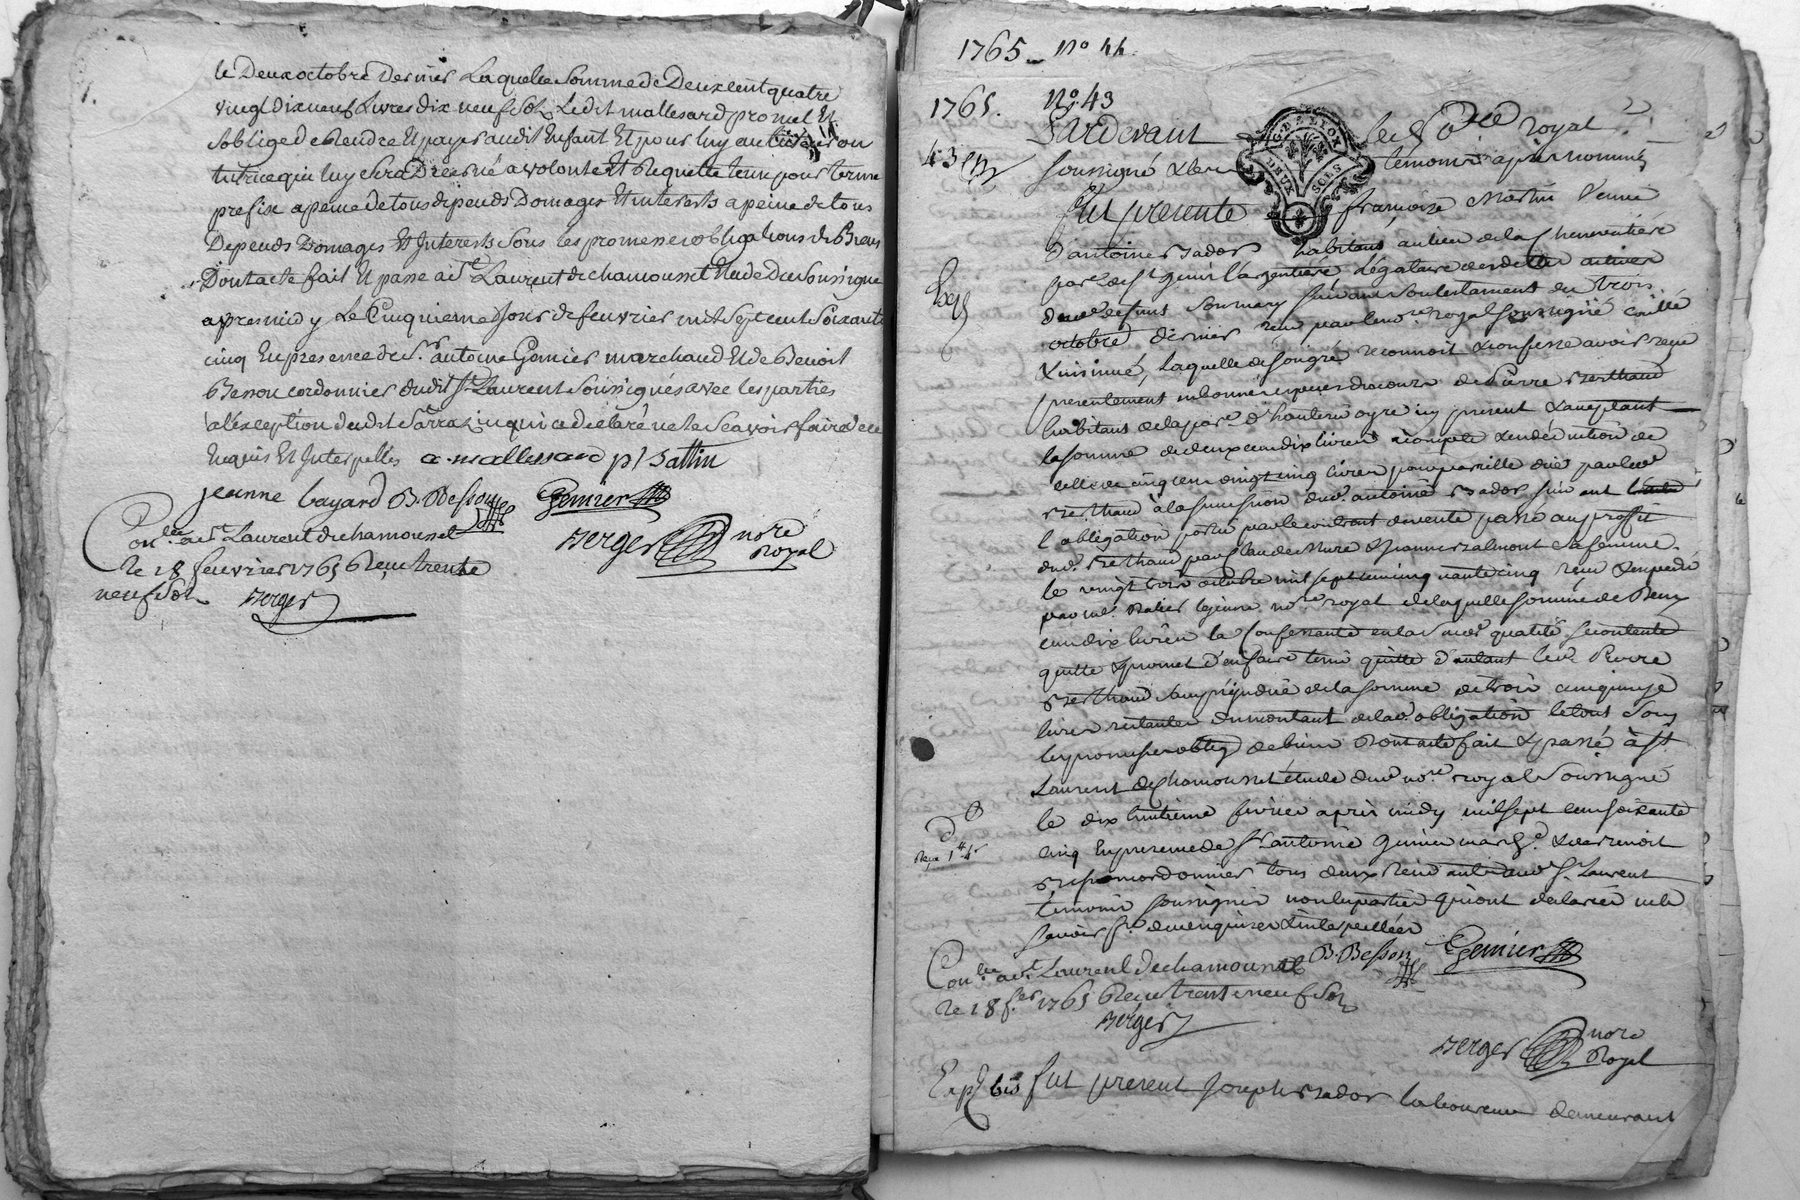 le Deux octobre Dernier Laquelle Somme de Deux cent quatre
vingt Dix neuf Livres dix neuf sols Ledit mallesard promet Et
Soblige de Rendre Et payer audit Enfant Et pour luy au tuteur ou
tutrice qui luy Sera Decerné a volonté Et Requette tenu pour terme
prefix a peine de tous depends Domages Et interets a peine de tous
Depends Domages Et Interets Sous les promesses obligations de Biens
Dont acte fait Et passé a St Laurent de chamousset Etude Du Soussigné
apres midy Le Cinquieme Jour de feuvrier mil Sept cent Soixante
cinq En presence de Sr. antoine Gemier marchand Et de Benoit
Besson cordonnier dudit St Laurent Soussignés avec les parties
a l'exception dudit Sarrazin qui a declaré ne le Scavoir faire de ce
Enquis Et Interpellés a. mallessard p l Sattin
jeanne bayard B. Besson Gemier
Conllé a St. Laurent de chamousset
le 18 feuvrier 1765 Reçu trente
neuf sols Berger
Berger nore
Royal
1765 No 44
1765. No. 43
Pardevant le No.re royal
43 soussigné & temoins après nommés
fut presente françoise Martin Veuve
d'antoine habitante au lieu de la
par.se de St Genis l'argentiere Légataire
dud. deffunt Son mary suivant Son testament du trois
octobre dernier reçu par led. no.re royal Soussigné controllé
& insinué, laquelle de Son gré reconnoit & confesse avoir reçu
presentement en bonnes especes de cours de Pierre Berthaud
habitant de la par.se d' icy present & acceptant
la Somme de deux cent dix livres a compte & en déduction de
celle de cinq cent vingt cinq livres pour pareille düe par led.
Berthaud à la Succession dud. antoine suivant
l'obligation portée par le contrat de vente passé au profit
dud. Berthaud par Claude & Sa femme
le vingt trois octobre mil sept cent cinquante cinq reçu & expedié
par me. le jeune no.re royal de laquelle Somme de Deux
cent dix livres la Confessante en lad. qualité Se contente
quitte & promet d'en faire tenir quitte d'autant led. Pierre
Berthaud Sans préjudice de la Somme de trois cent quinze
livres restantes du montant de lad. obligation le tout Sous
les promesses oblig. de biens Dont acte fait & passé à St
Laurent de Chamousset étude dud. no.re royal Soussigné
le dix huitieme février après midy mil sept cent soixante
cinq En presence de Sr antoine Gemier march.d & de Benoit
Besson cordonnier tous deux aud. St. Laurent
temoins soussignés non les parties qui ont declaré ne le
savoir f.re de ce enquises & interpellées
B. Besson Gemier
Conllé a St. Laurent de chamousset
le 18 f.er 1765 Reçu trente neuf sols
Berger
Berger nore
Royal
Exp. bis fut present Joseph laboureur demeurant
G. DE LYON
DEUX SOLS